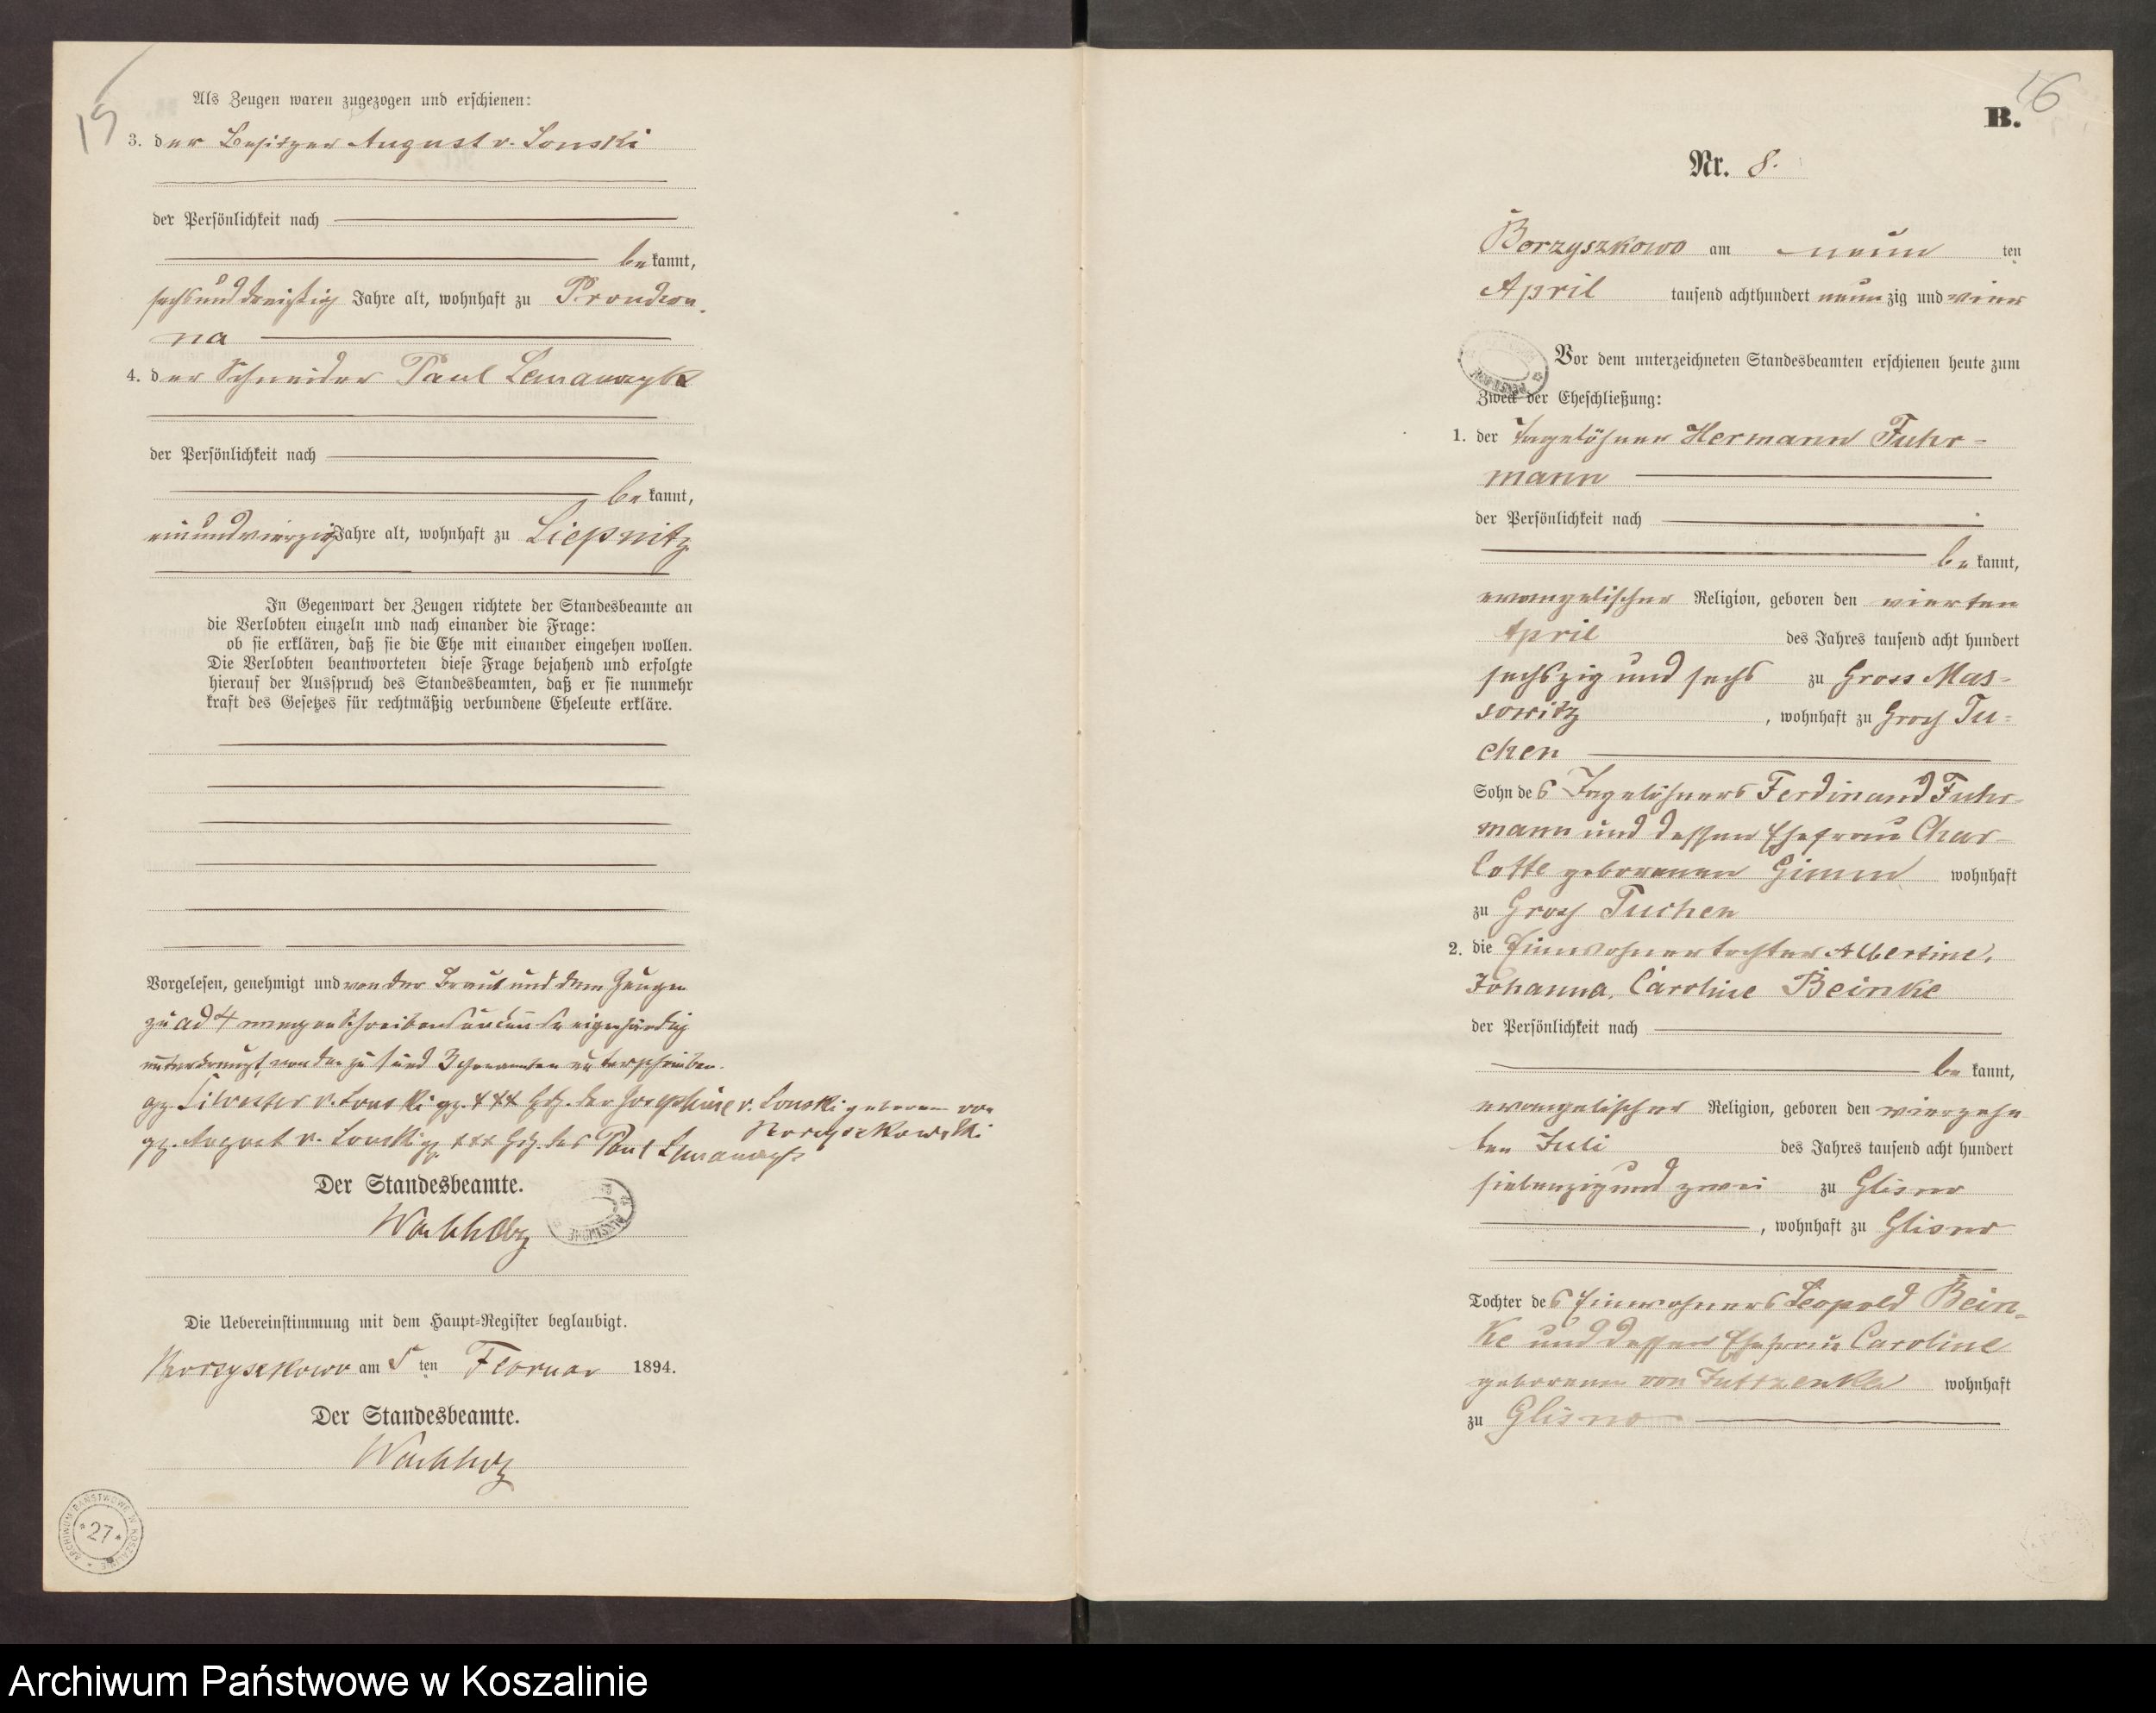 15
Als Zeugen waren zugezogen und erschienen:
3. der Besitzer August v. Lonski
der Persönlichkeit nach
bekannt,
sechsunddreißig Jahre alt, wohnhaft zu Prondzon-
na
4. der Schneider Paul Lemanczyk
der Persönlichkeit nach
bekannt,
einundvierzig Jahre alt, wohnhaft zu Liepnitz
In Gegenwart der Zeugen richtete der Standesbeamte an
die Verlobten einzeln und nach einander die Frage:
ob sie erklären, daß sie die Ehe mit einander eingehen wollen.
Die Verlobten beantworteten diese Frage bejahend und erfolgte
hierauf der Ausspruch des Standesbeamten, daß er sie nunmehr
kraft des Gesetzes für rechtmäßig verbundene Eheleute erkläre.
Vorgelesen, genehmigt und von der Braut und dem Zeugen
zu ad 4 wegen Schreibensunkunde eigenhändig
unterkreuzt, von den zu 1 und 3 genannten unterschrieben.
gz. Silvester v. Lonski gz. +++ Hdz. der Josephine v. Lonski geboren von
Borzyszkowski
gz. August v. Lonski gz. +++ Hdz. des Paul Lemanczyk
Der Standesbeamte.
Wachholz
Die Uebereinstimmung mit dem Haupt-Register beglaubigt.
Borzyszkowo am 5 ten Februar 1894.
Der Standesbeamte.
Wachholz
ARCHIWUM PAŃSTWOWE W KOSZALINIE
27
16
B.
Nr. 8.
Borzyszkowo am neun ten
April tausend achthundert neunzig und vier
Vor dem unterzeichneten Standesbeamten erschienen heute zum
Zweck der Eheschließung:
1. der Tagelöhner Hermann Fuhr-
mann
der Persönlichkeit nach
bekannt,
evangelischer Religion, geboren den vierten
April des Jahres tausend acht hundert
sechszig und sechs zu Gross Mas-
sowitz, wohnhaft zu Groß Tu-
chen
Sohn des Tagelöhners Ferdinand Fuhr-
mann und dessen Ehefrau Char-
lotte geborenen Gimm wohnhaft
zu Groß Tuchen
2. die Einwohnertochter Albertine,
Johanna, Caroline Beinke
der Persönlichkeit nach
bekannt,
evangelischer Religion, geboren den vierzehn
ten Juli des Jahres tausend acht hundert
siebenzig und zwei zu Glisno
, wohnhaft zu Glisno
Tochter des Einwohners Leopold Bein-
ke und dessen Ehefrau Caroline
geborenen von Jutrzenka wohnhaft
zu Glisno
Archiwum Państwowe w Koszalinie